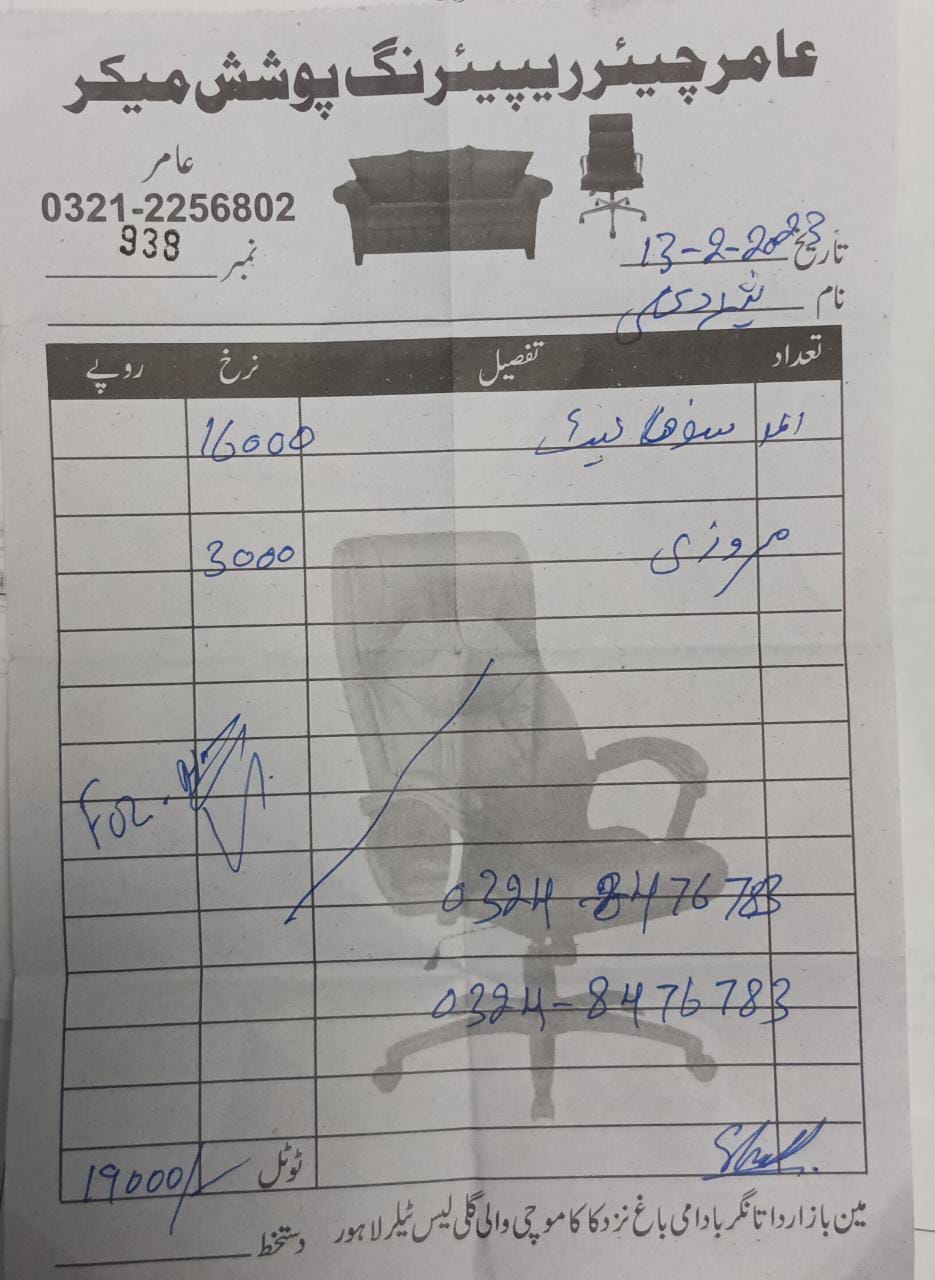 عامر چیئر ریپیئرنگ پوشش میکر
عامر
0321-2256802
نمبر 938
تاریخ 13-2-2023
نام
تعداد تفصیل نرخ روپے
سوفا 16000
3000
For
0324-8476783
0324-8476783
ٹوٹل 19000/
مین بازار داتا نگر بادامی باغ نزد کاکا موچی والی گلی لیس ٹیلر لاہور
دستخط